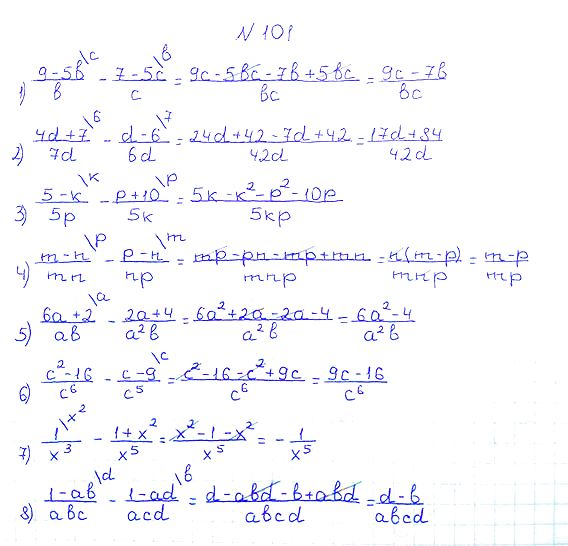 N 101
1) \frac{9-5в^{\c}}{в} - \frac{7-5c^{\в}}{c} = \frac{9c-5вc-7в+5вc}{вc} = \frac{9c-7в}{вc}
2) \frac{4d+7^{\6}}{7d} - \frac{d-6^{\7}}{6d} = \frac{24d+42-7d+42}{42d} = \frac{17d+84}{42d}
3) \frac{5-к^{\к}}{5p} - \frac{p+10^{\p}}{5к} = \frac{5к-к^2-p^2-10p}{5кp}
4) \frac{m-n^{\p}}{mn} - \frac{p-n^{\m}}{np} = \frac{mp-pn-mp+mn}{mnp} = \frac{n(m-p)}{mnp} = \frac{m-p}{mp}
5) \frac{6a+2^{\a}}{aв} - \frac{2a+4}{a^2в} = \frac{6a^2+2a-2a-4}{a^2в} = \frac{6a^2-4}{a^2в}
6) \frac{c^2-16}{c^6} - \frac{c-9^{\c}}{c^5} = \frac{c^2-16-c^2+9c}{c^6} = \frac{9c-16}{c^6}
7) \frac{1^{\x^2}}{x^3} - \frac{1+x^2}{x^5} = \frac{x^2-1-x^2}{x^5} = -\frac{1}{x^5}
8) \frac{1-aв^{\d}}{aвc} - \frac{1-ad^{\в}}{acd} = \frac{d-aвd-в+aвd}{aвcd} = \frac{d-в}{aвcd}